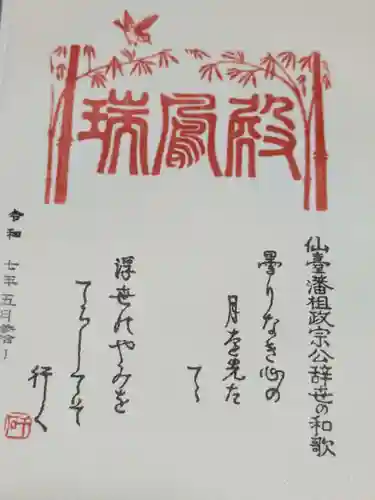 瑞鳳殿
仙臺藩祖政宗公辞世の和歌
曇りなき心の
月を先た
てゝ
浮世のやみを
てらしてそ
行く
令和
七年五月参拾一